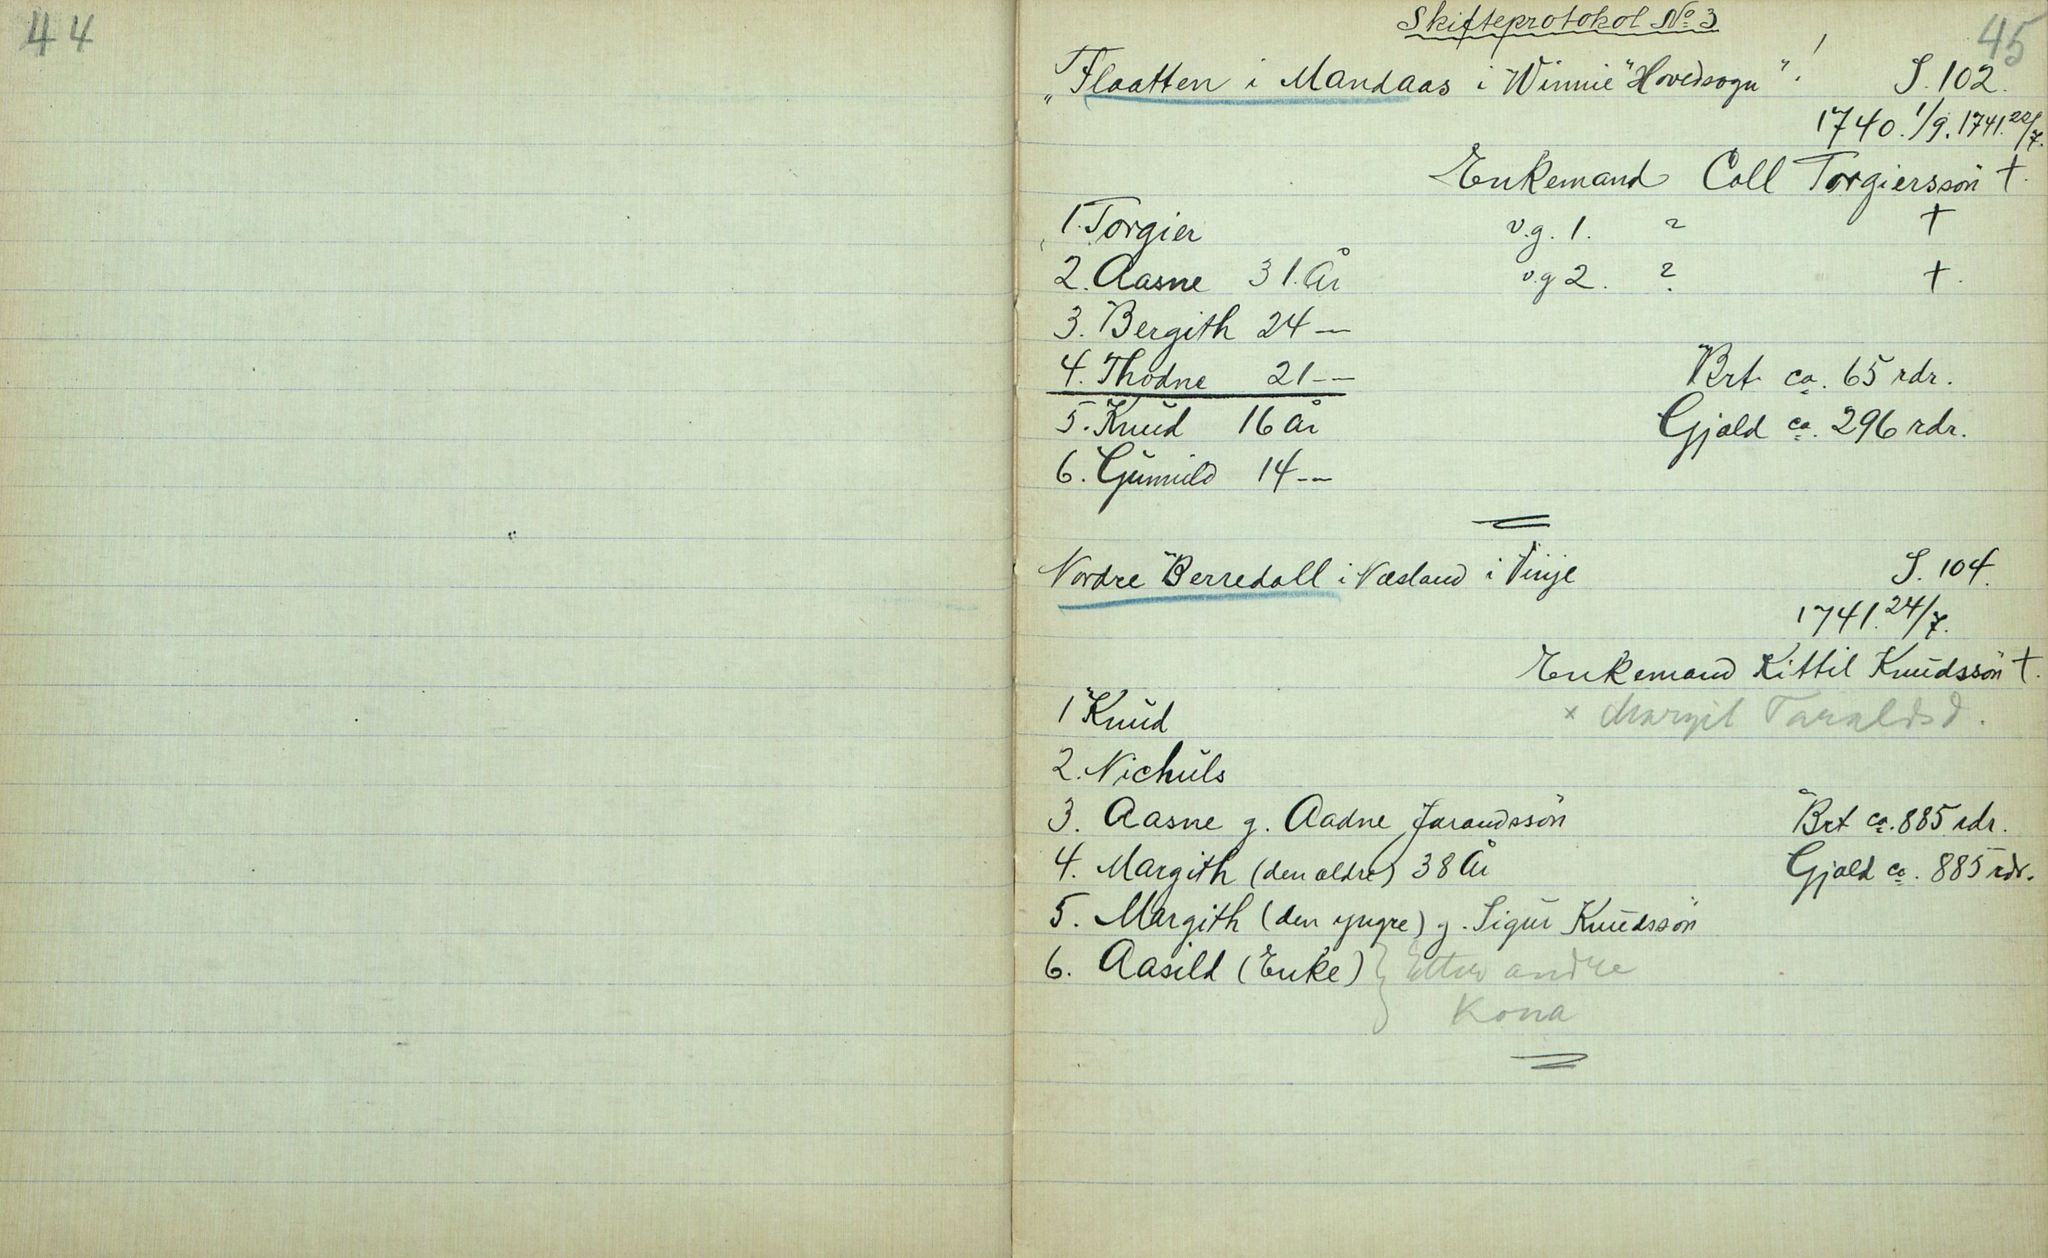 44
45
Skifteprotokol No 3
"Flaatten i Mandaas i Winnie "Hovedsogn"! S. 102.
1740. 1/9. 1741. 22/7.
Enkemand Coll Torgiersøn †.
1. Torgier v.g. 1. ? †
2. Aasne 31. År v.g 2. ? †.
3. Bergith 24 —
4. Thodne 21 — Brt ca. 65 rdr.
5. Knud 16 år Gjæld ca. 296 rdr.
6. Gunnild 14 —
Nordre Berredall i Næsland i Vinje S. 104.
1741. 24/7.
Enkemand Kittil Knudssøn †.
1 Knud x Margit Taraldsd.
2. Nichuls
3. Aasne g. Aadne Jarandssøn Brt ca. 885 rdr.
4. Margith (den ældre) 38 År Gjæld ca. 885 rdr.
5. Margith (den yngre) g. Sigur Knudssøn
6. Aasild (Enke) } Etter andre
Kona